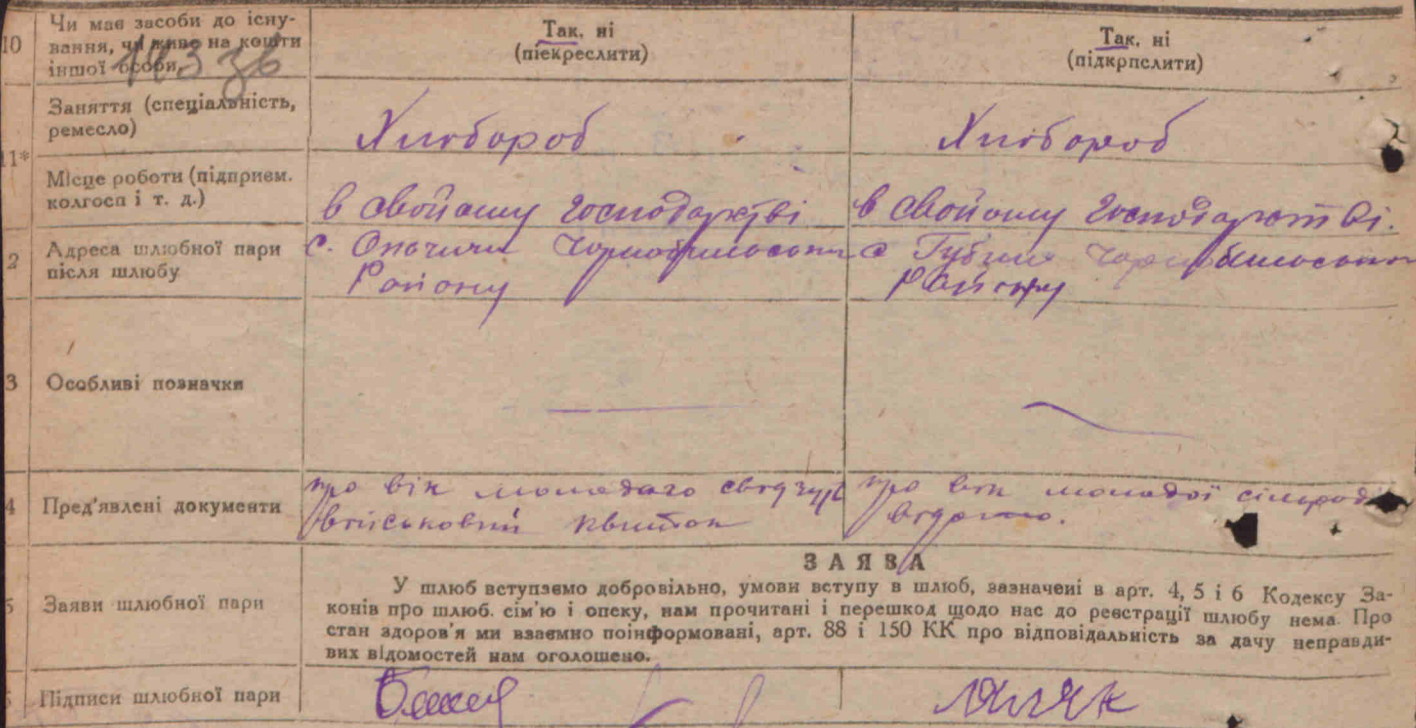 10 Чи має засоби до існу-
вання, чи живе на кошти
іншої особи
Так, ні
(піекреслити)
Так, ні
(підкрпслити)
Заняття (спеціальність,
ремесло)
Хлібороб
Хлібороб
11*
Місце роботи (підприєм.
колгосп і т. д.)
в свойому господарстві
в свойому господарстві.
2 Адреса шлюбної пари
після шлюбу
с. Опачичи Чорнобильського
Району
с Губин Чорнобильського
Району
3 Особливі позначки
4 Пред'явлені документи
про вік молодого
військовий квиток
про вік молодої
ЗАЯВА
5 Заяви шлюбної пари
У шлюб вступаємо добровільно, умови вступу в шлюб, зазначені в арт. 4, 5 і 6 Кодексу За-
конів про шлюб. сім'ю і опеку, нам прочитані і перешкод щодо нас до реєстрації шлюбу нема. Про
стан здоров'я ми взаємно поінформовані, арт. 88 і 150 КК про відповідальність за дачу неправди-
вих відомостей нам оголошено.
Підписи шлюбної пари